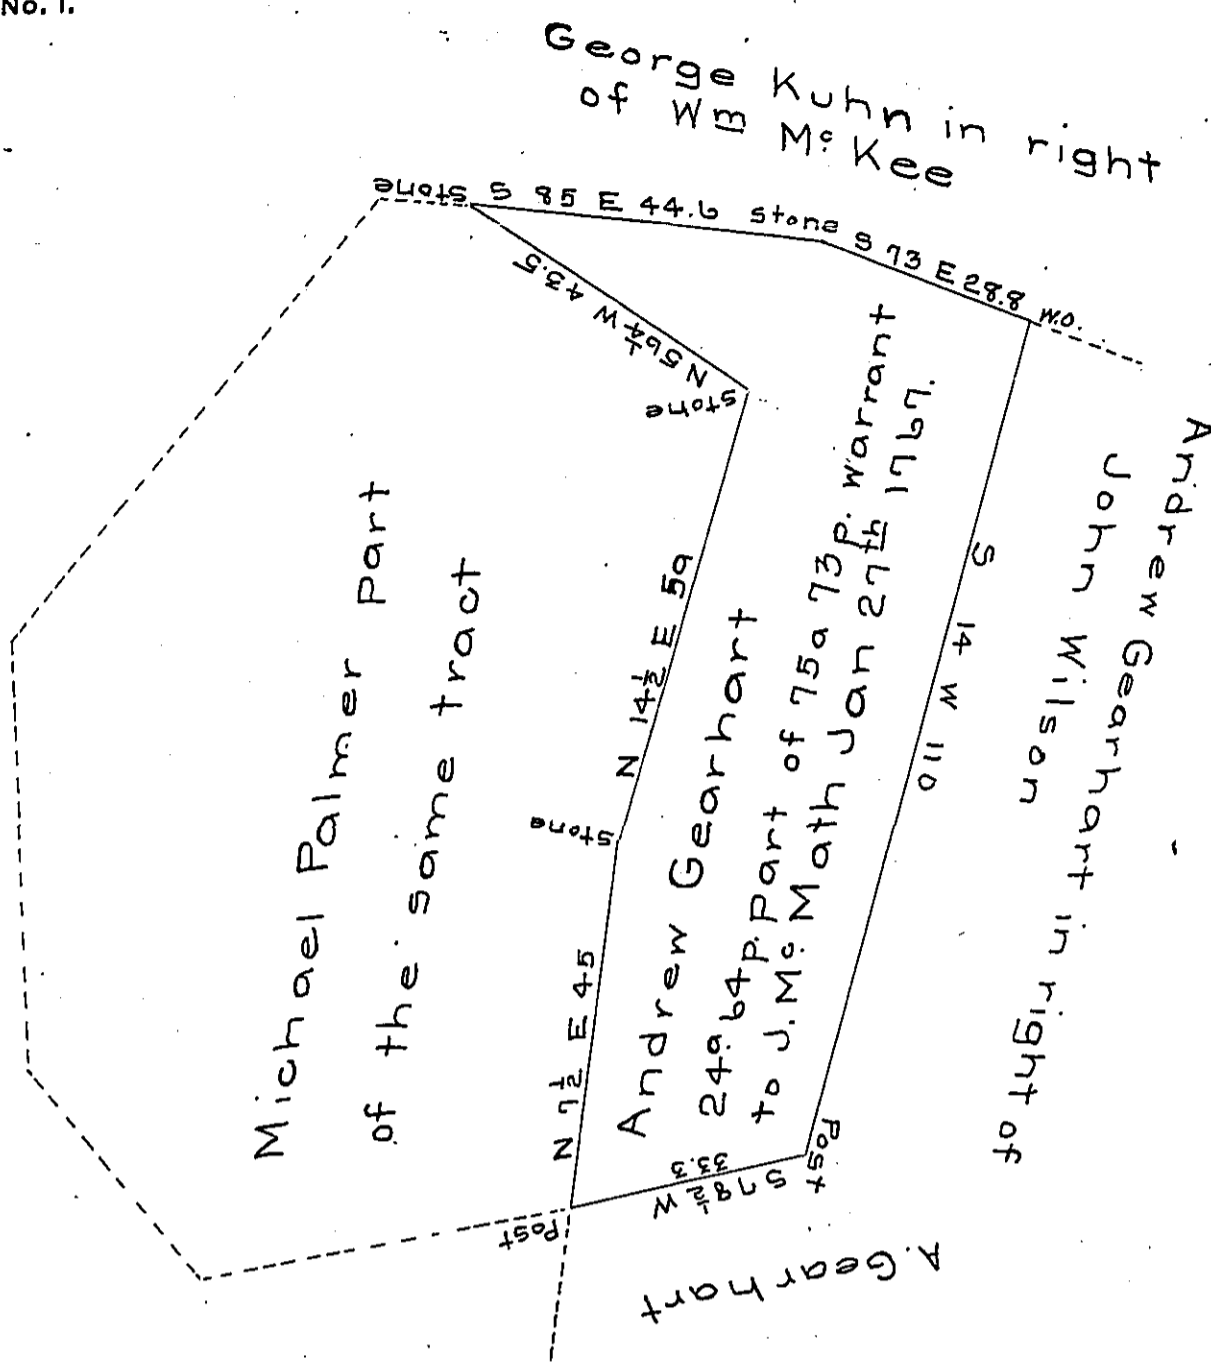 No. 1.
George Kuhn in right
of Wm Mc Kee
stone S 85 E 44.6 stone S 73 E 28.8 W.O.
N 56 1/4 W 43.5
stone
N 14 1/2 E 59
stone
N 7 1/2 E 45
Post
S 78 1/2 W
33.3
Post
S 14 W 110
Michael Palmer Part
of the same tract
Andrew Gearhart
24a 64p. Part of 75a 73p. warrant
to J. Mc Math Jan 27th 1767.
Andrew Gearhart in right of
John Wilson
A. Gearhart